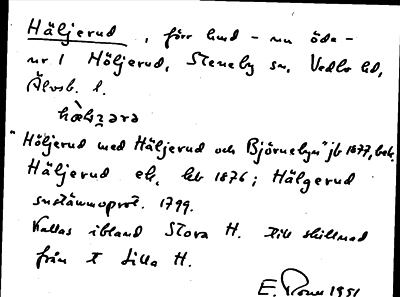 Häljerud, förr hmd - nu öde -
nr 1 Höljerud, Steneby sn, Vedbo hd,
Älvsb. l.
"Höljerud med Häljerud och Björnebyn" jb 1877, bok.
Häljerud ek, 1876; Hälgerud
1799.
Kallas ibland Stora H. till skillnad
från Lilla H.
E. 1951